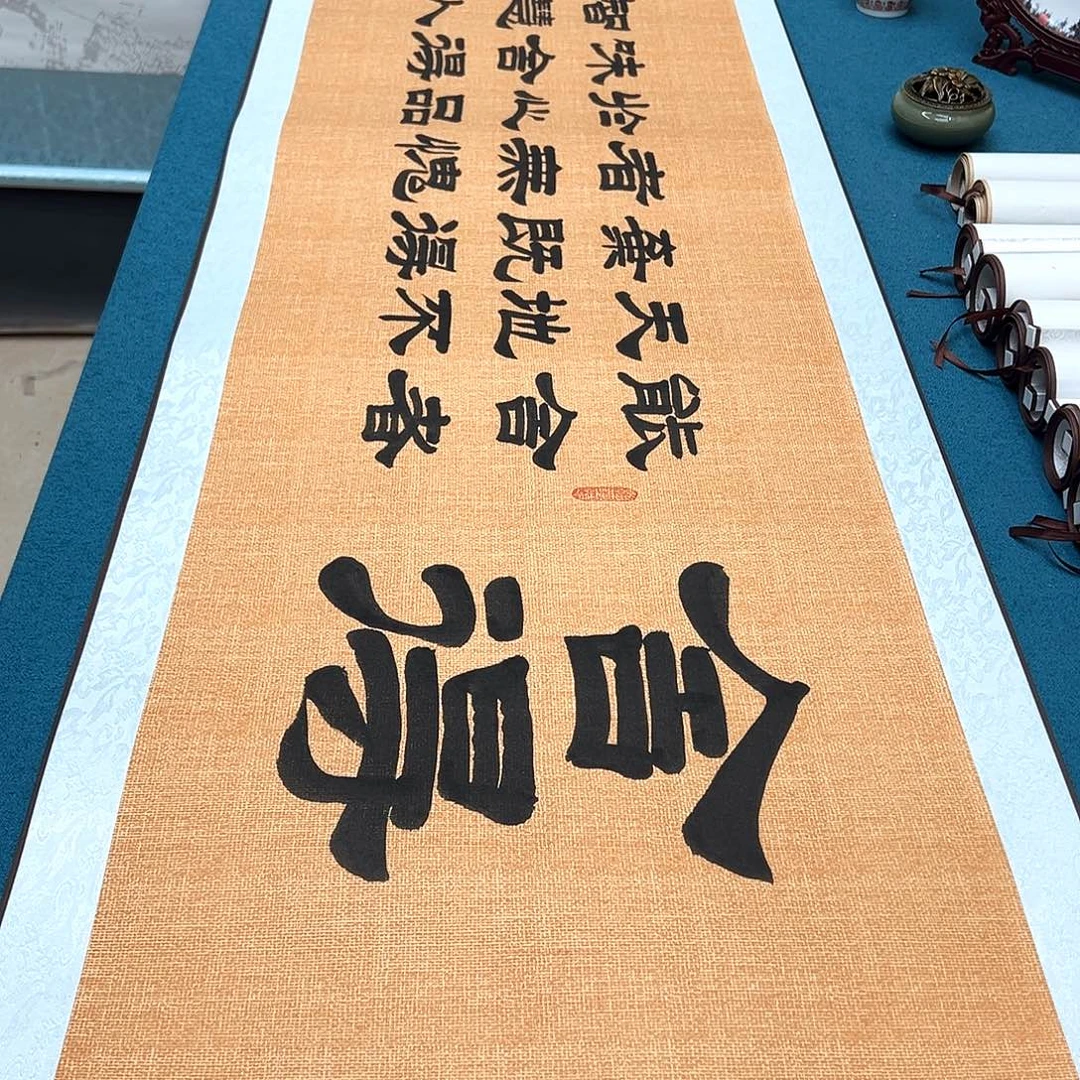 舍得
能舍者
天地不
棄既得
者無愧
於心品
味舍得
智慧人